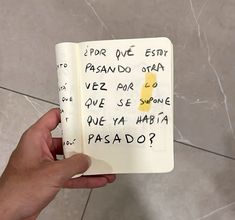 ¿POR QUÉ ESTOY
PASANDO OTRA
VEZ POR LO
QUE SE SUPONE
QUE YA HABÍA
PASADO?